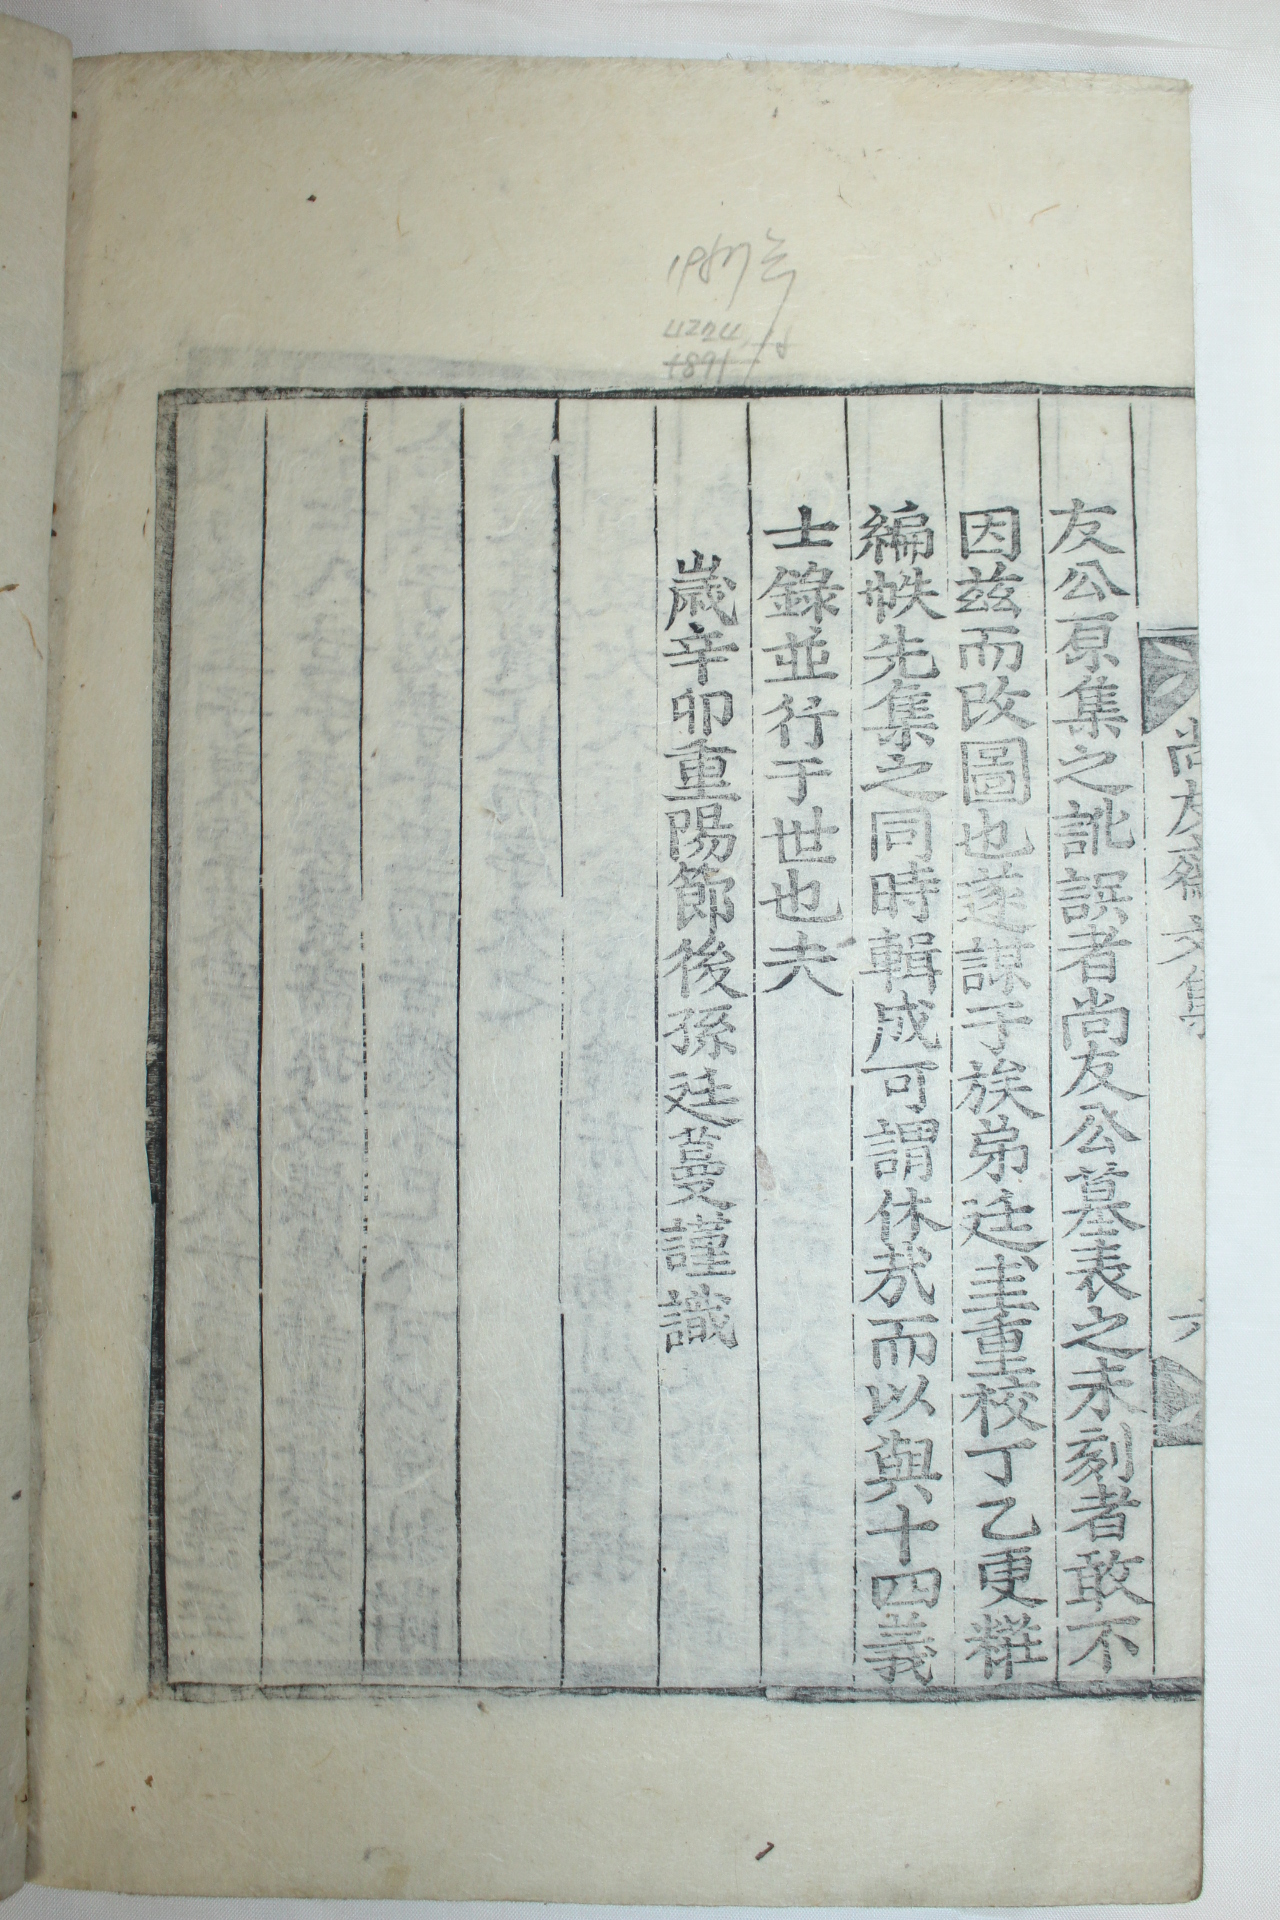 尚友齋文集
六
友公原集之訛誤者尚友公墓表之未刻者敢不
因茲而改圖也遂謀于族弟廷圭重校丁乙更糚
編帙先集之同時輯成可謂休哉而以與十四義
士錄並行于世也夫
歲辛卯重陽節後孫廷蔓謹識
4224
1891